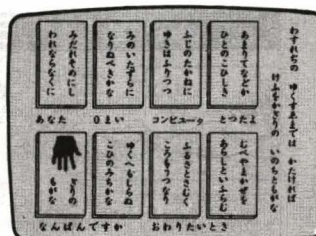 わすれちの ゆくすゑまでは かたければ
けふをかぎりの いのちともがな
あまりてなどか
ひとのこひしき
ふじのたかねに
ゆきはふりつつ
みのいたずらに
なりぬべきかな
みだれそめにし
われならなくに
あなた 0まい コンピュータ とつたよ
むべやまかぜを
あらしといふらむ
ふるさとさむく
ころもうつなり
ゆくへもしらぬ
こひのみちかな
ぎりの
もがな
なんばんですか おわりたいとき